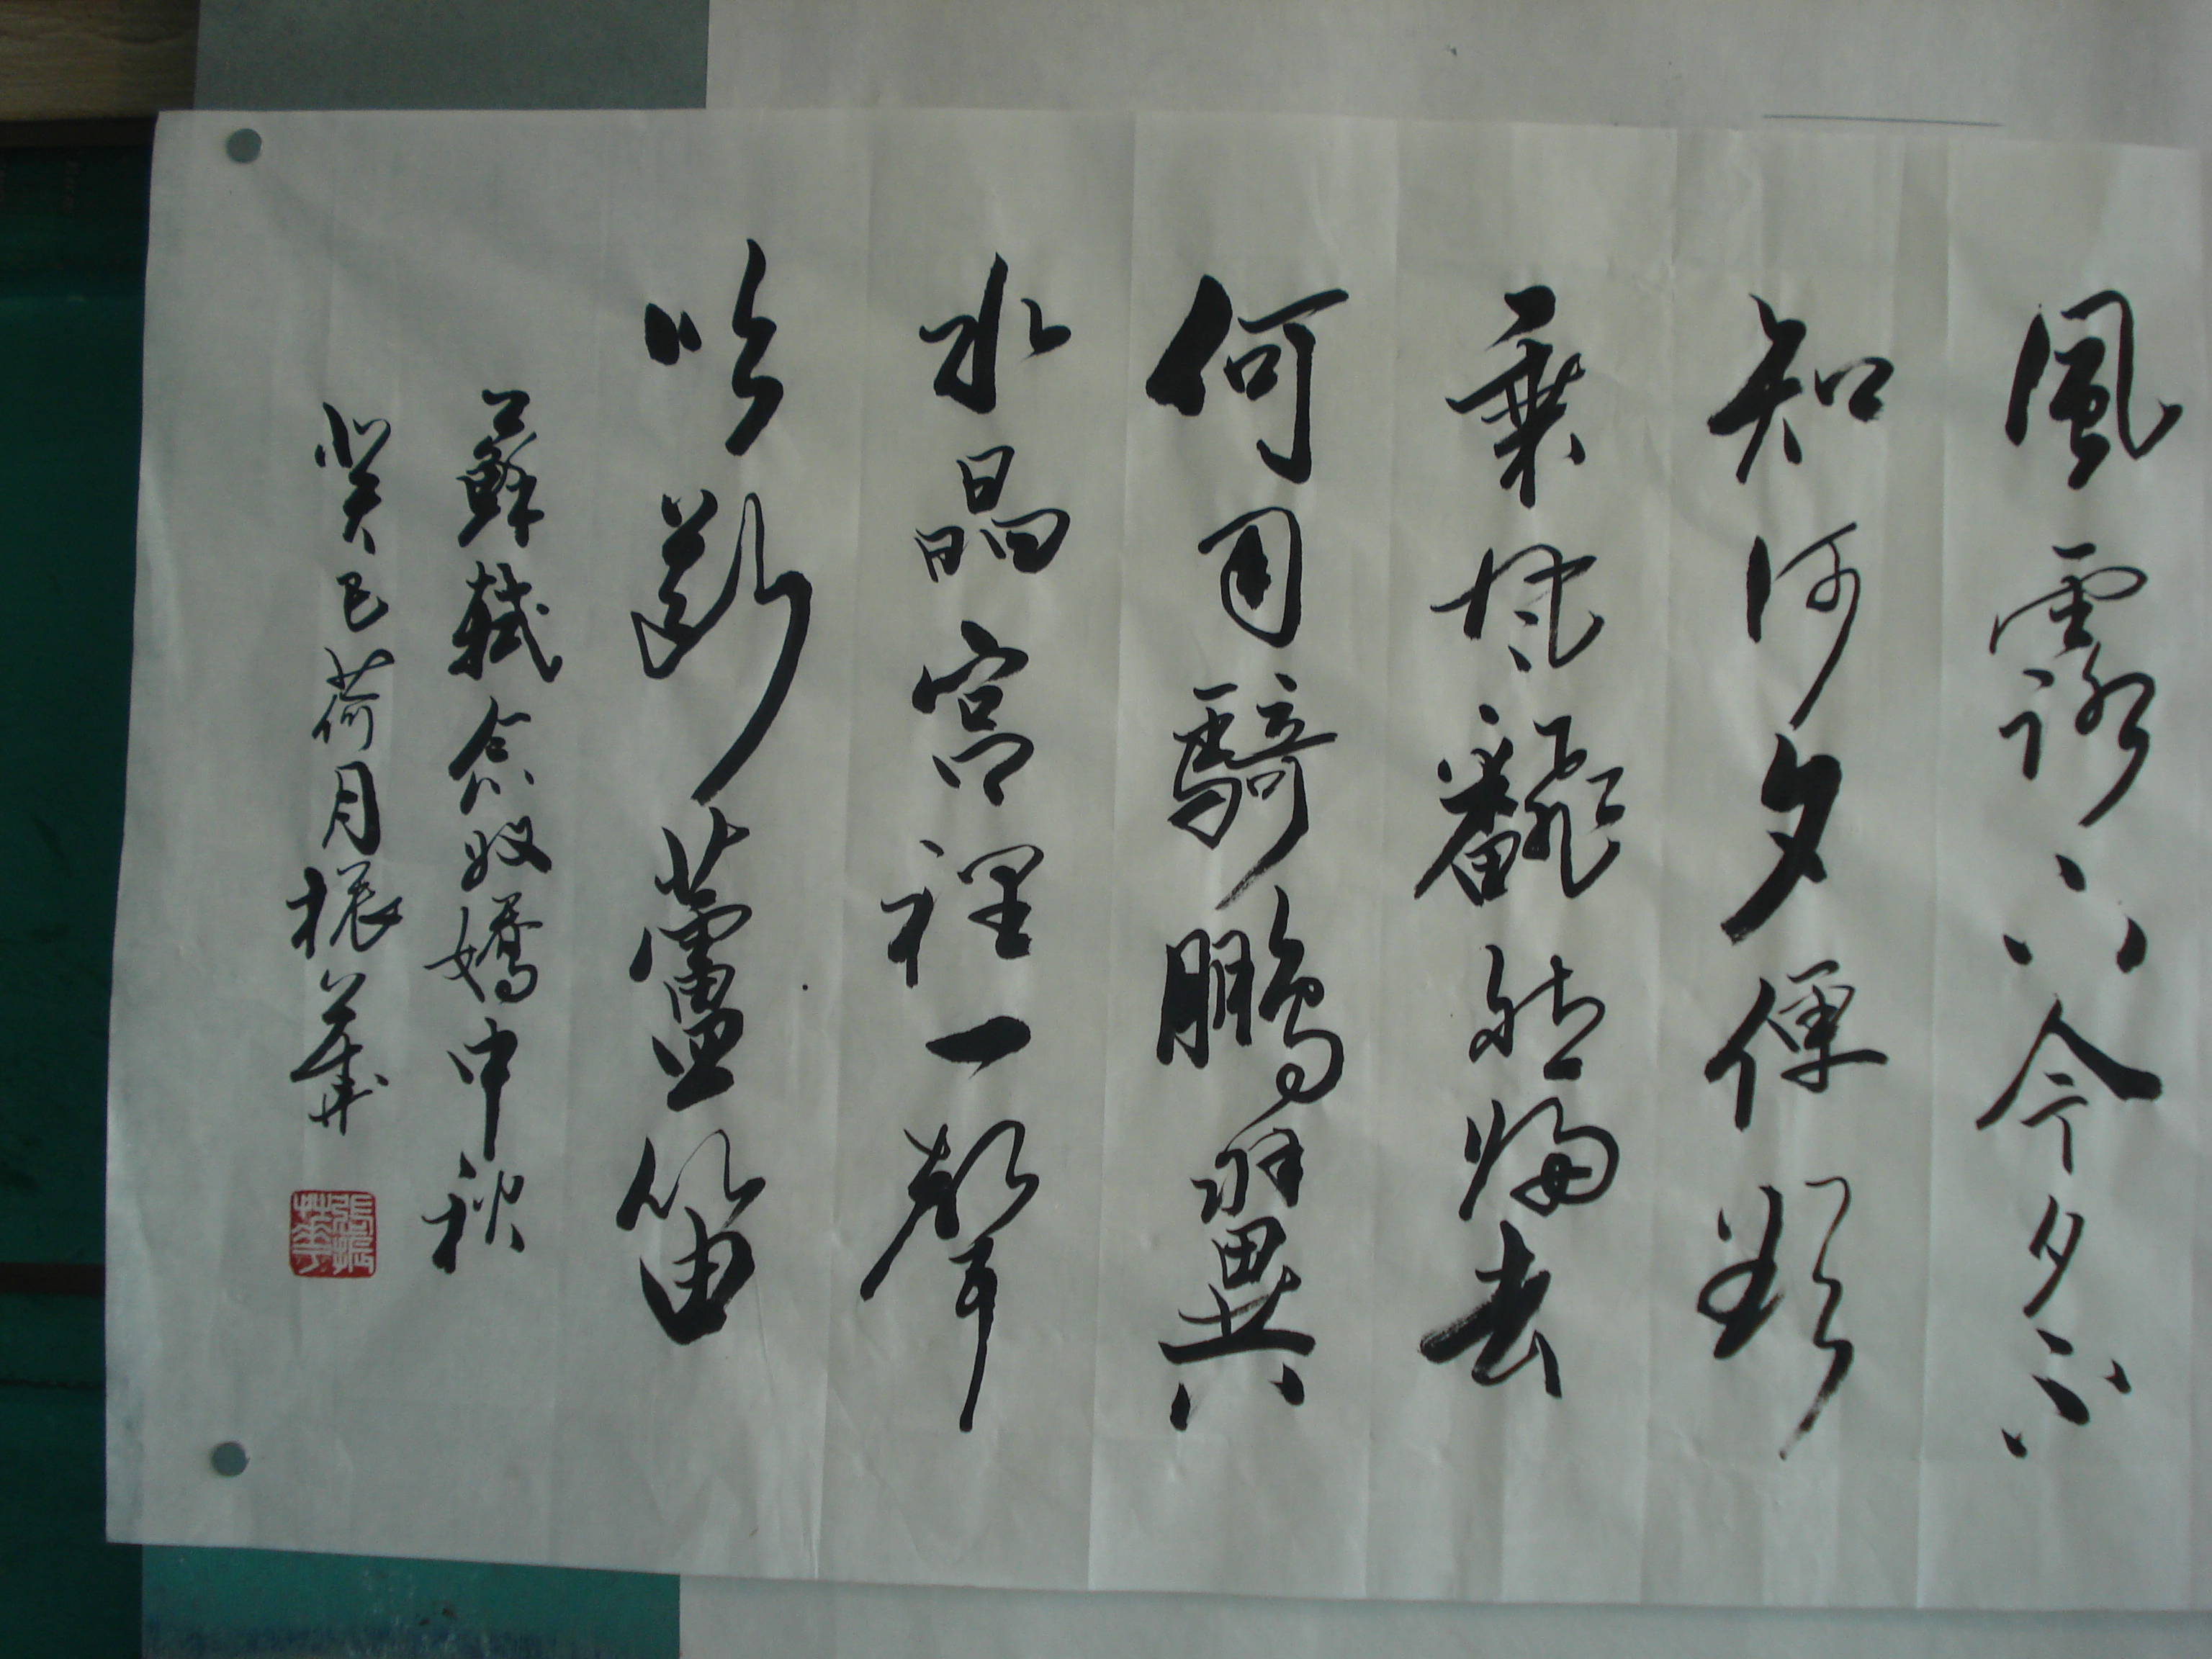 風露下今夕不
知何夕便欲
乘風飜然歸去
何用騎鵬翼
水晶宮裡一聲
吹斷蘆笛
蘇軾念奴嬌中秋
癸巳荷月振華
張振華